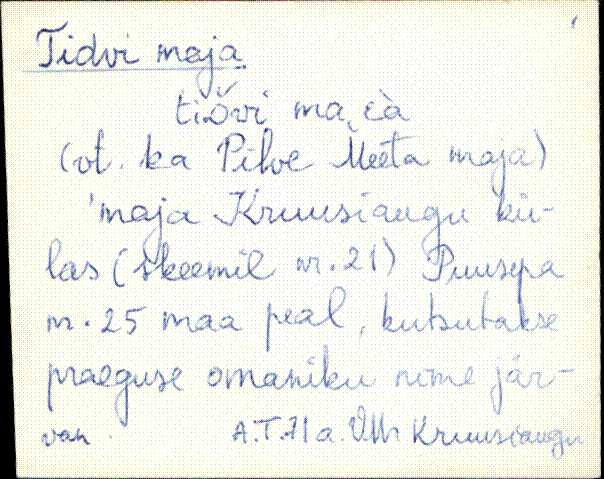 Tidvi maja
(vt. ka Pilve Meeta maja)
'maja Kruusiaugu kü-
las (skeemil nr. 21) Puusepa
nr. 25 maa peal, kutsutakse
praeguse omaniku nime jär-
van. Kruusiaugu